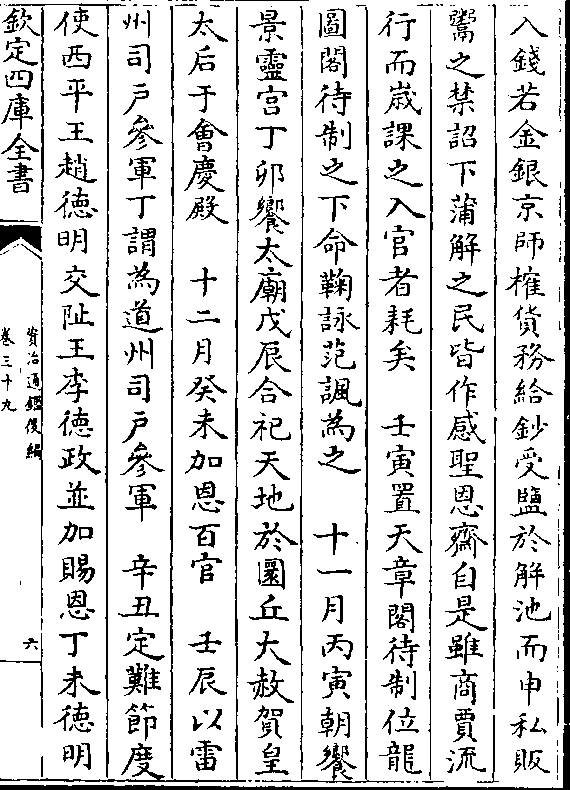 入錢若金銀京師榷貨務給鈔受鹽於解池而申私販
鬻之禁詔下蒲解之民皆作感聖恩齋自是雖商賈流
行而嵗課之入官者耗矣　壬寅置天章閣待制位龍
圖閣待制之下命鞠詠范諷為之　十一月丙寅朝饗
景靈宫丁卯饗太廟戊辰合祀天地於圜丘大赦賀皇
太后于會慶殿　十二月癸未加恩百官　壬辰以雷
州司戶參軍丁謂為道州司戶參軍　辛丑定難節度
使西平王趙德明交阯王李德政並加賜恩丁未德明
欽定四庫全書
資治通鑑後編
卷三十九
六